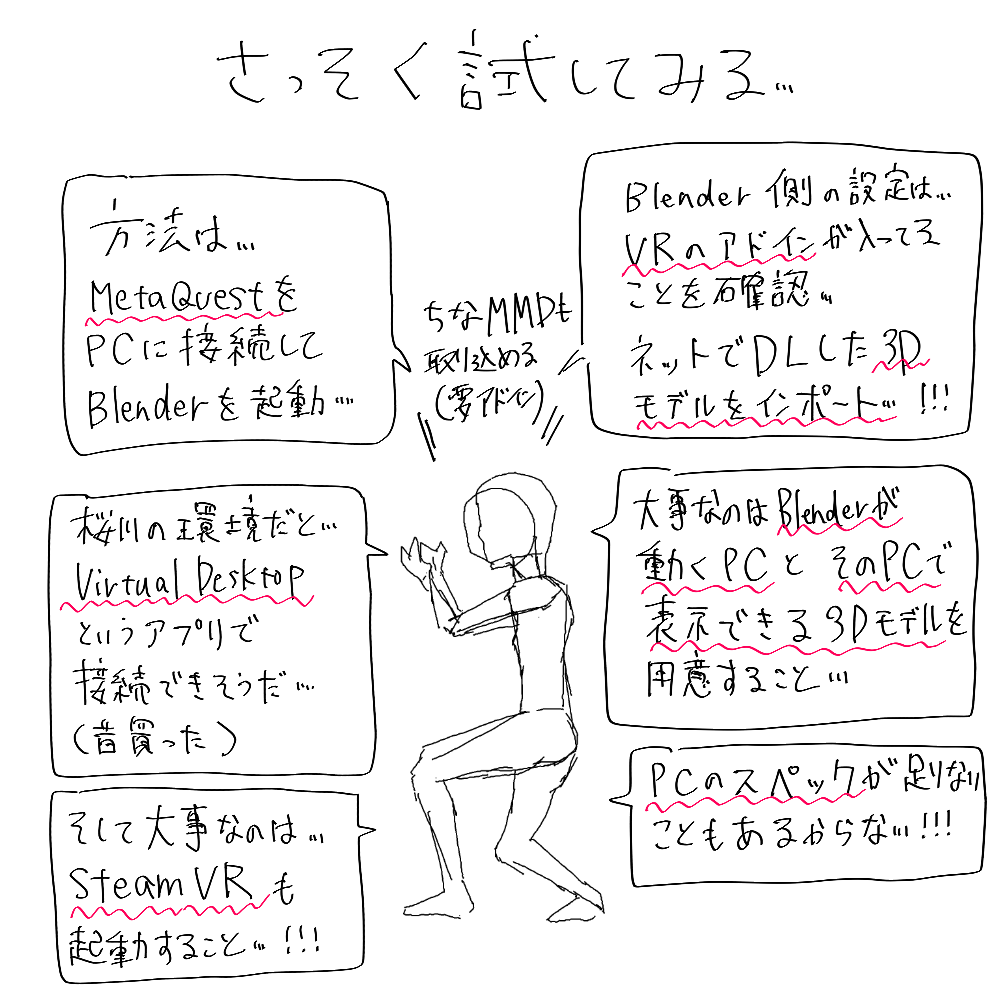 さっそく試してみる…
方法は…
MetaQuestを
PCに接続して
Blenderを起動…
Blender側の設定は…
VRのアドインが入ってる
ことを確認…
ネットでDLした3D
モデルをインポート…!!!
ちなMMDも
取り込める
(要アドイン)
桜川の環境だと…
Virtual Desktop
というアプリで
接続できそうだ…
(昔買った)
大事なのはBlenderが
動くPCとそのPCで
表示できる3Dモデルを
用意すること…
そして大事なのは…
SteamVRも
起動すること…!!!
PCのスペックが足りない
こともあるからな…!!!